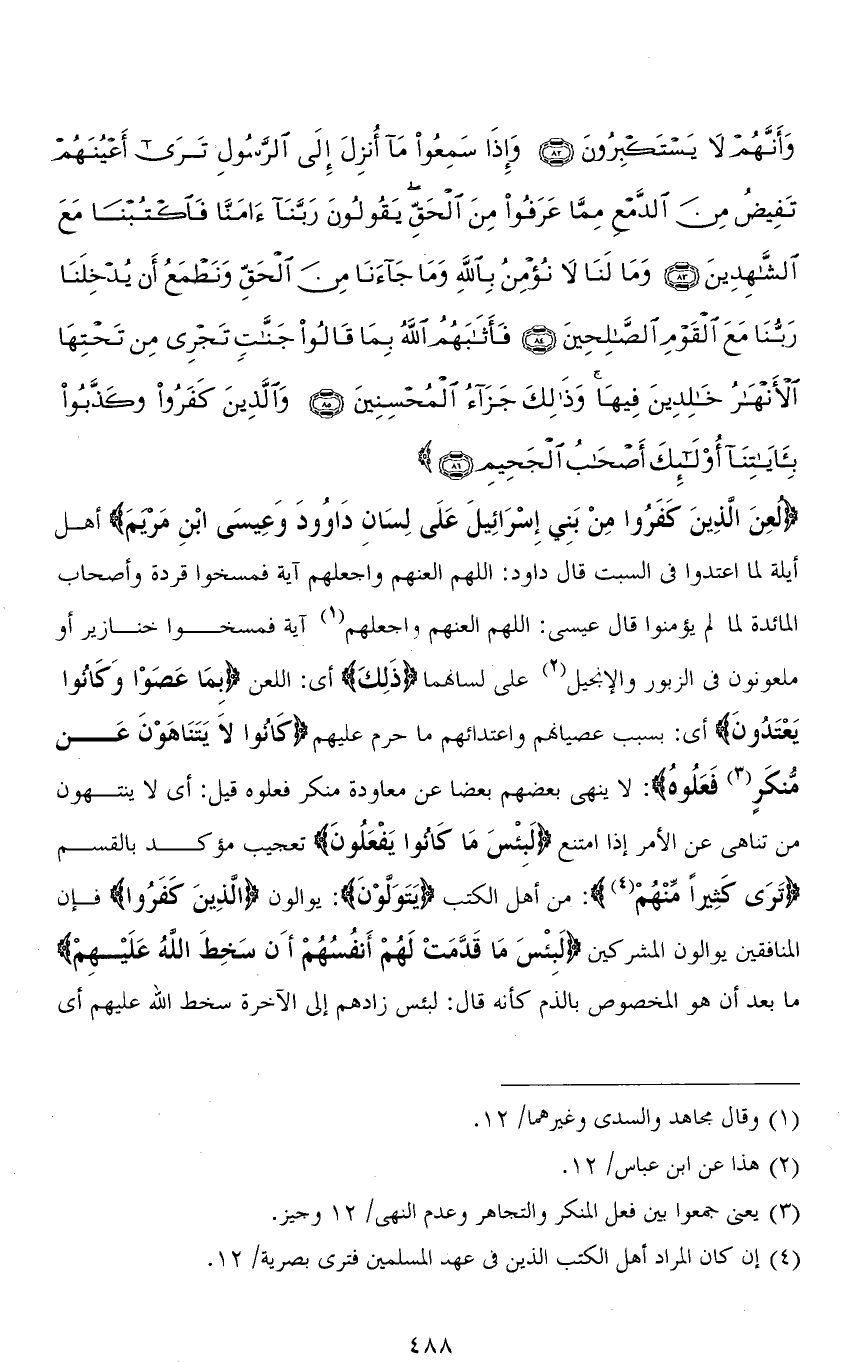 وَأَنَّهُمْ لَا يَسْتَكْبِرُونَ ﴿٨٢﴾ وَإِذَا سَمِعُوا۟ مَآ أُنزِلَ إِلَى ٱلرَّسُولِ تَرَىٰٓ أَعْيُنَهُمْ
تَفِيضُ مِنَ ٱلدَّمْعِ مِمَّا عَرَفُوا۟ مِنَ ٱلْحَقِّ ۖ يَقُولُونَ رَبَّنَآ ءَامَنَّا فَٱكْتُبْنَا مَعَ
ٱلشَّٰهِدِينَ ﴿٨٣﴾ وَمَا لَنَا لَا نُؤْمِنُ بِٱللَّهِ وَمَا جَآءَنَا مِنَ ٱلْحَقِّ وَنَطْمَعُ أَن يُدْخِلَنَا
رَبُّنَا مَعَ ٱلْقَوْمِ ٱلصَّٰلِحِينَ ﴿٨٤﴾ فَأَثَٰبَهُمُ ٱللَّهُ بِمَا قَالُوا۟ جَنَّٰتٍ تَجْرِى مِن تَحْتِهَا
ٱلْأَنْهَٰرُ خَٰلِدِينَ فِيهَا ۚ وَذَٰلِكَ جَزَآءُ ٱلْمُحْسِنِينَ ﴿٨٥﴾ وَٱلَّذِينَ كَفَرُوا۟ وَكَذَّبُوا۟
بِـَٔايَٰتِنَآ أُو۟لَٰٓئِكَ أَصْحَٰبُ ٱلْجَحِيمِ ﴿٨٦﴾ ﴾
﴿لُعِنَ الَّذِينَ كَفَرُوا مِنْ بَنِي إِسْرَائِيلَ عَلَى لِسَانِ دَاوُودَ وَعِيسَى ابْنِ مَرْيَمَ﴾ أهل
أيلة لما اعتدوا فى السبت قال داود: اللهم العنهم واجعلهم آية فمسخوا قردة وأصحاب
المائدة لما لم يؤمنوا قال عيسى: اللهم العنهم واجعلهم(١) آية فمسخوا خنازير أو
ملعونون فى الزبور والإنجيل(٢) على لسانهما ﴿ذَلِكَ﴾ أى: اللعن ﴿بِمَا عَصَوْا وَكَانُوا
يَعْتَدُونَ﴾ أى: بسبب عصيانهم واعتدائهم ما حرم عليهم ﴿كَانُوا لاَ يَتَنَاهَوْنَ عَن
مُّنكَرٍ(٣) فَعَلُوهُ﴾: لا ينهى بعضهم بعضا عن معاودة منكر فعلوه قيل: أى لا ينتهون
من تناهى عن الأمر إذا امتنع ﴿لَبِئْسَ مَا كَانُوا يَفْعَلُونَ﴾ تعجيب مؤكد بالقسم
﴿تَرَى كَثِيراً مِّنْهُمْ(٤)﴾: من أهل الكتب ﴿يَتَوَلَّوْنَ﴾: يوالون ﴿الَّذِينَ كَفَرُوا﴾ فإن
المنافقين يوالون المشركين ﴿لَبِئْسَ مَا قَدَّمَتْ لَهُمْ أَنفُسُهُمْ أَن سَخِطَ اللَّهُ عَلَيْهِمْ﴾
ما بعد أن هو المخصوص بالذم كأنه قال: لبئس زادهم إلى الآخرة سخط الله عليهم أى
(١) وقال مجاهد والسدى وغيرهما/ ١٢.
(٢) هذا عن ابن عباس/ ١٢.
(٣) يعنى جمعوا بين فعل المنكر والتجاهر وعدم النهى/ ١٢ وجيز.
(٤) إن كان المراد أهل الكتب الذين فى عهد المسلمين فترى بصرية/ ١٢.
٤٨٨